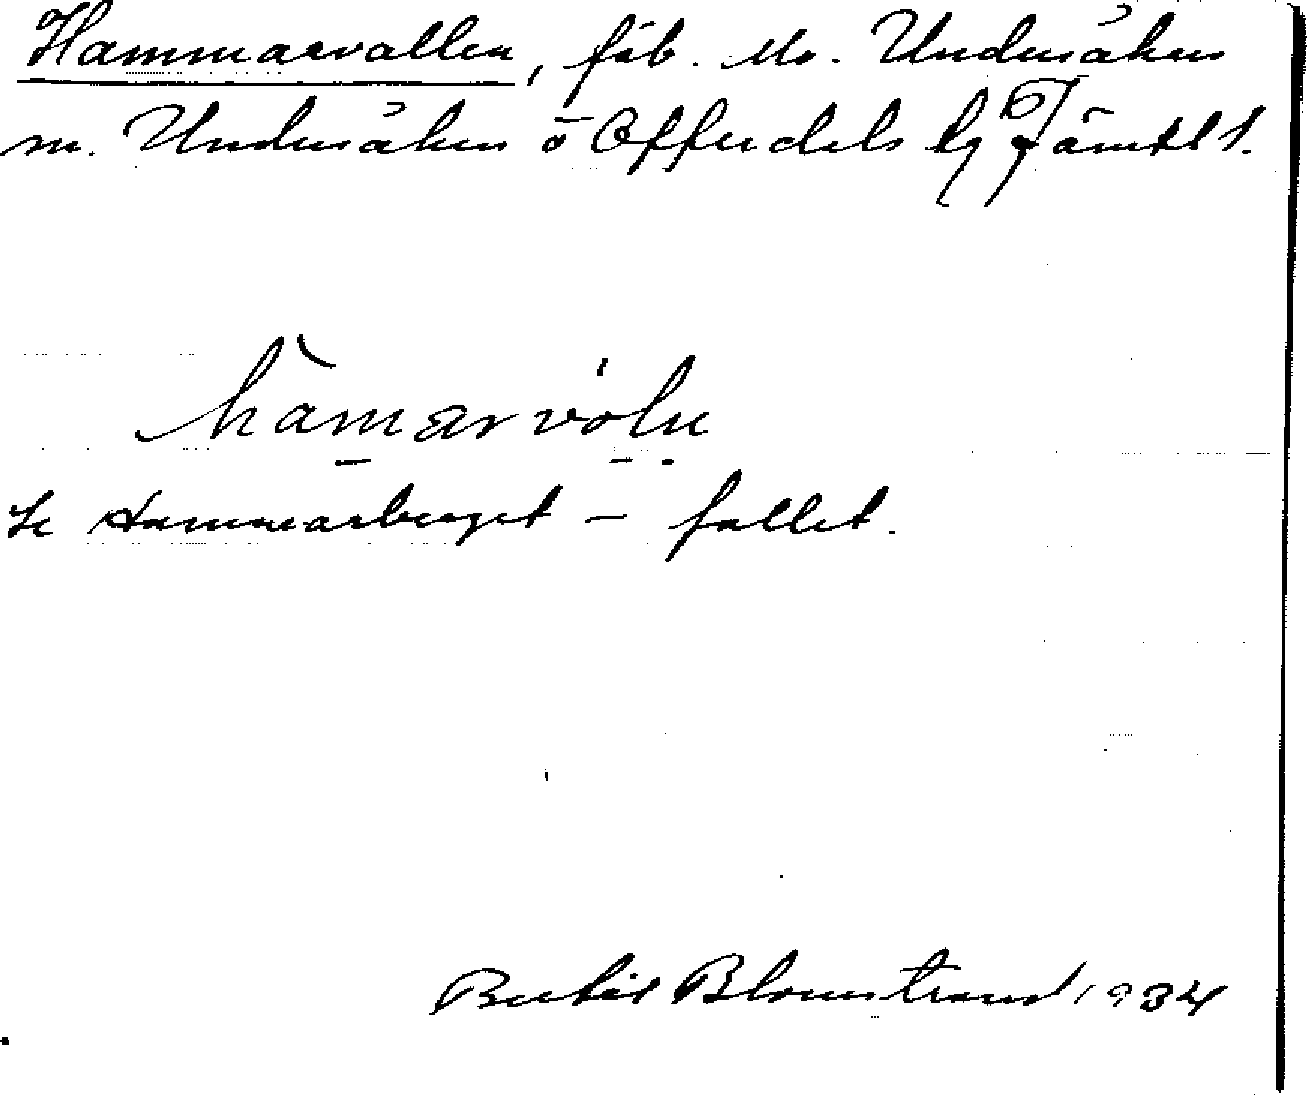 Hammarvallen, fäb. Mo. Undersåkers
m. Undersåkers o Offerdals tg Jämtl l.
hàmarvóln
Se Hammarberget – fallet.
Bertil Blomstrand 1934